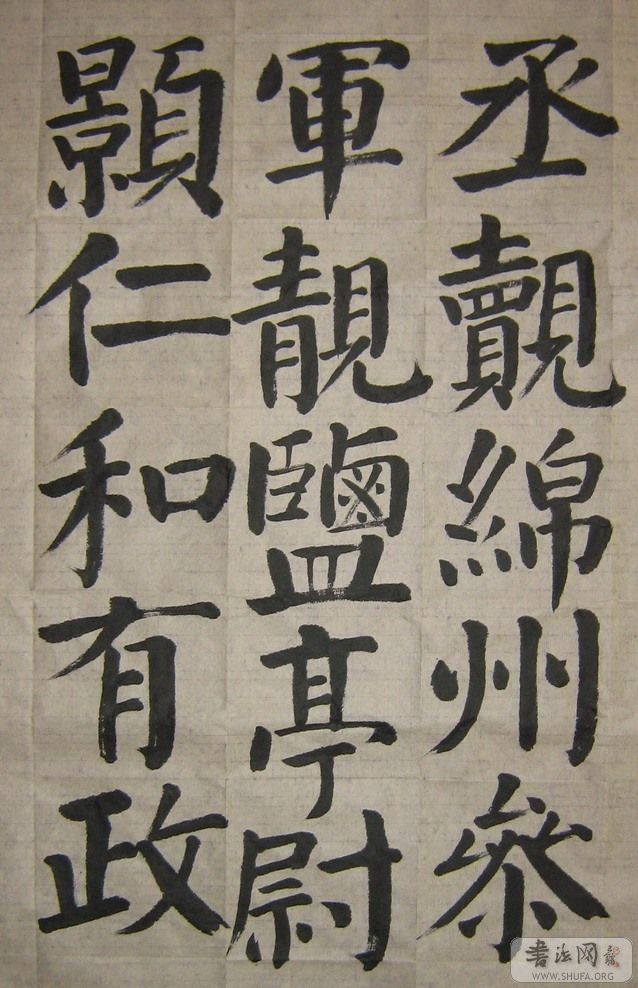 丞覿綿州參
軍靚鹽亭尉
顥仁和有政
书法网
WWW.SHUFA.ORG